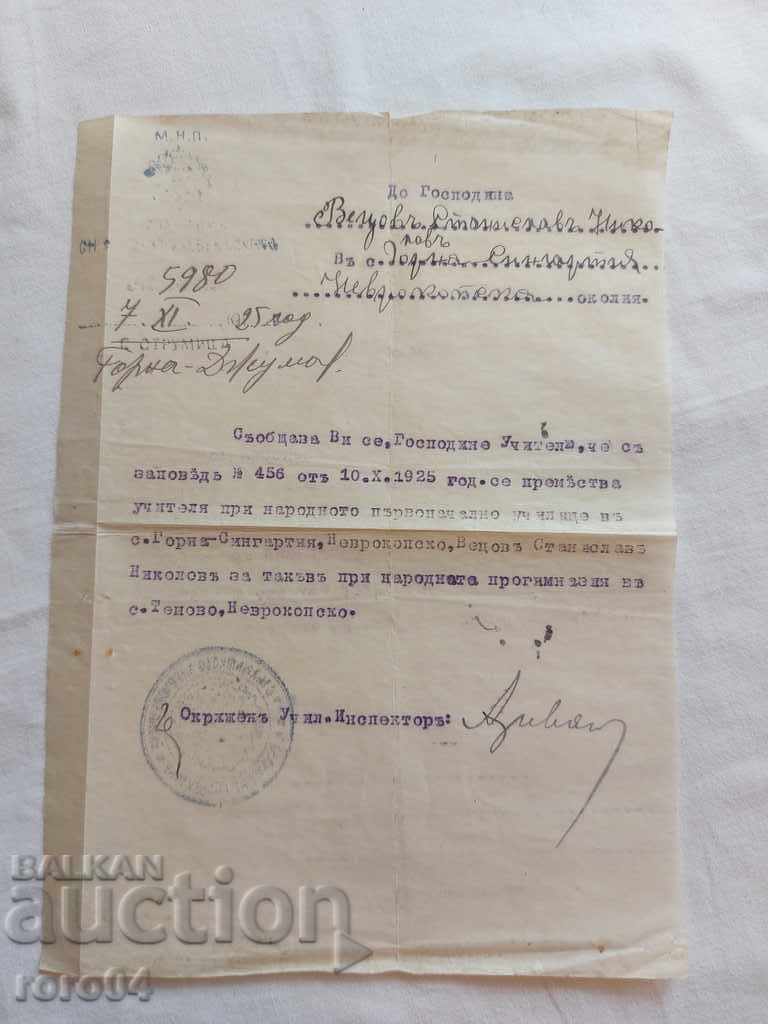 М.Н.П.
До Господина
Вецовъ Станиславъ Нико-
ловъ
Въ с. Горна Сингартия
Неврокопска околия.
5980
7. XI. 25 год.
г. СТРУМИЦА
Горна-Джумая.
Съобщава Ви се, Господине Учителю, че съ
заповѣдь № 456 отъ 10.X.1925 год. се премѣства
учителя при народното първоначално училище въ
с. Горна-Сингартия, Неврокопско, Вецовъ Станиславъ
Николовъ за такъвъ при народната прогимназия въ
с. Теново, Неврокопско.
Окрѫженъ Учил. Инспекторъ:
BALKAN
auction
roro04